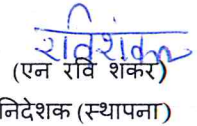 रविशंकर
(एन रवि शंकर)
निदेशक (स्थापना)